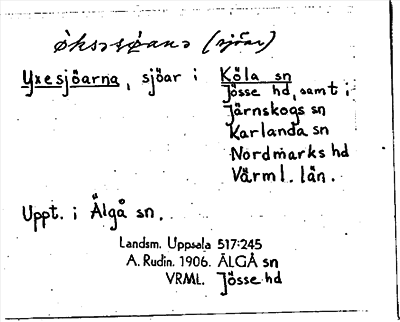 (sjöar)
Yxesjöarna, sjöar i Köla sn
Jösse hd, samt i
Järnskogs sn
Karlanda sn
Nordmarks hd
Värml. län.
Uppt. i Älgå sn.
Landsm. Uppsala 517:245
A. Rudin. 1906. ÄLGÅ sn
VRML. Jösse hd